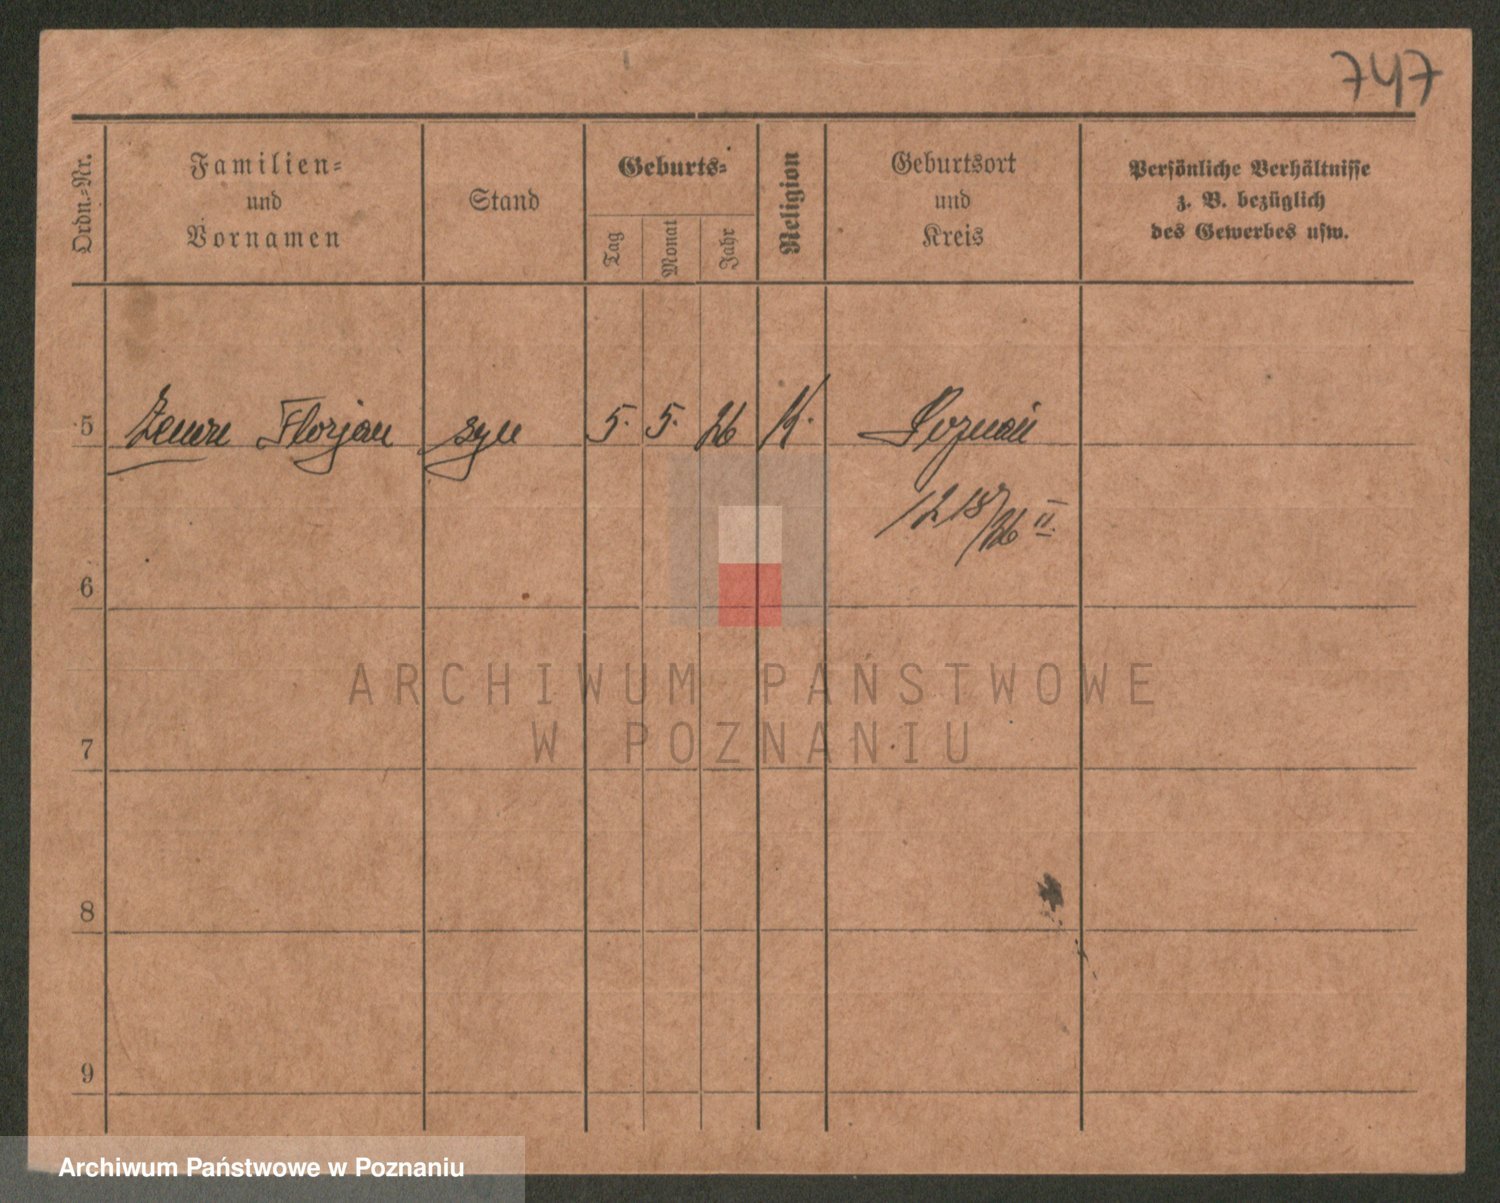 747
Ordn.-Nr.
Familien-
und
Vornamen
Stand
Geburts-
Tag
Monat
Jahr
Religion
Geburtsort
und
Kreis
Persönliche Verhältnisse
z. B. bezüglich
des Gewerbes usw.
5 Zenon Florjan syn 5. 5. 26 K. Poznań
1218/26 II
6
7
8
9
ARCHIWUM PAŃSTWOWE
W POZNANIU
Archiwum Państwowe w Poznaniu